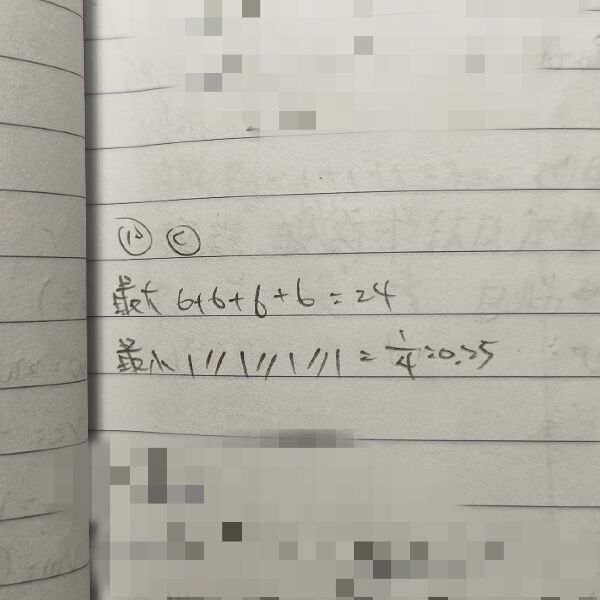 ⑬ ⓒ
最大 6+6+6+6=24
最小 1//1//1//1=1/4=0.25